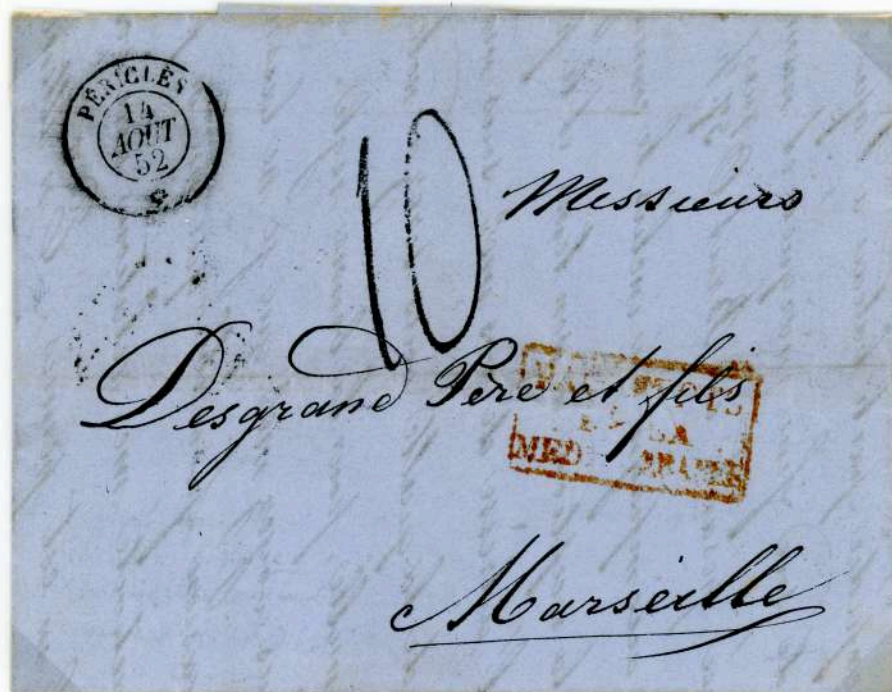 PÉRICLÈS
14
AOUT
52
10
Messieurs
Desgrand Père et fils
Marseille